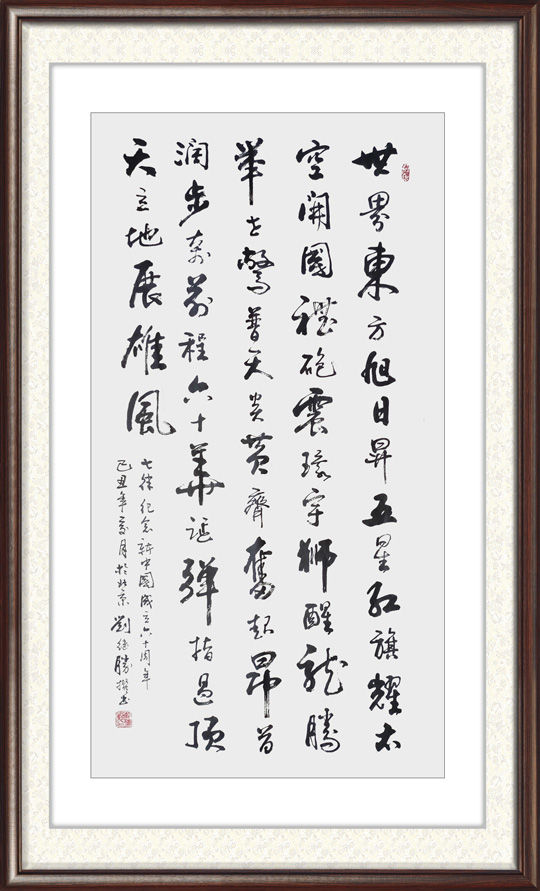 世界東方旭日昇五星红旗耀太
空開國禮砲震環宇狮醒龙騰
举世驚普天炎黄齊奮起昂首
阔步奔前程六十華诞弹指過顶
天立地展雄風
七律纪念新中國成立六十周年
己丑年夏月於北京劉勝撰书